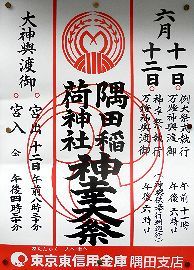 六月
十一日
例大祭式執行
午前十一時
万燈神輿渡御
午後六時
十二日
神幸祭式執行
万燈神輿渡御
午後六時
隅田稲
荷神社
神幸大祭
大神輿渡御
宮出
十二日
午前
宮入
午後四時
東京東信用金庫 隅田支店